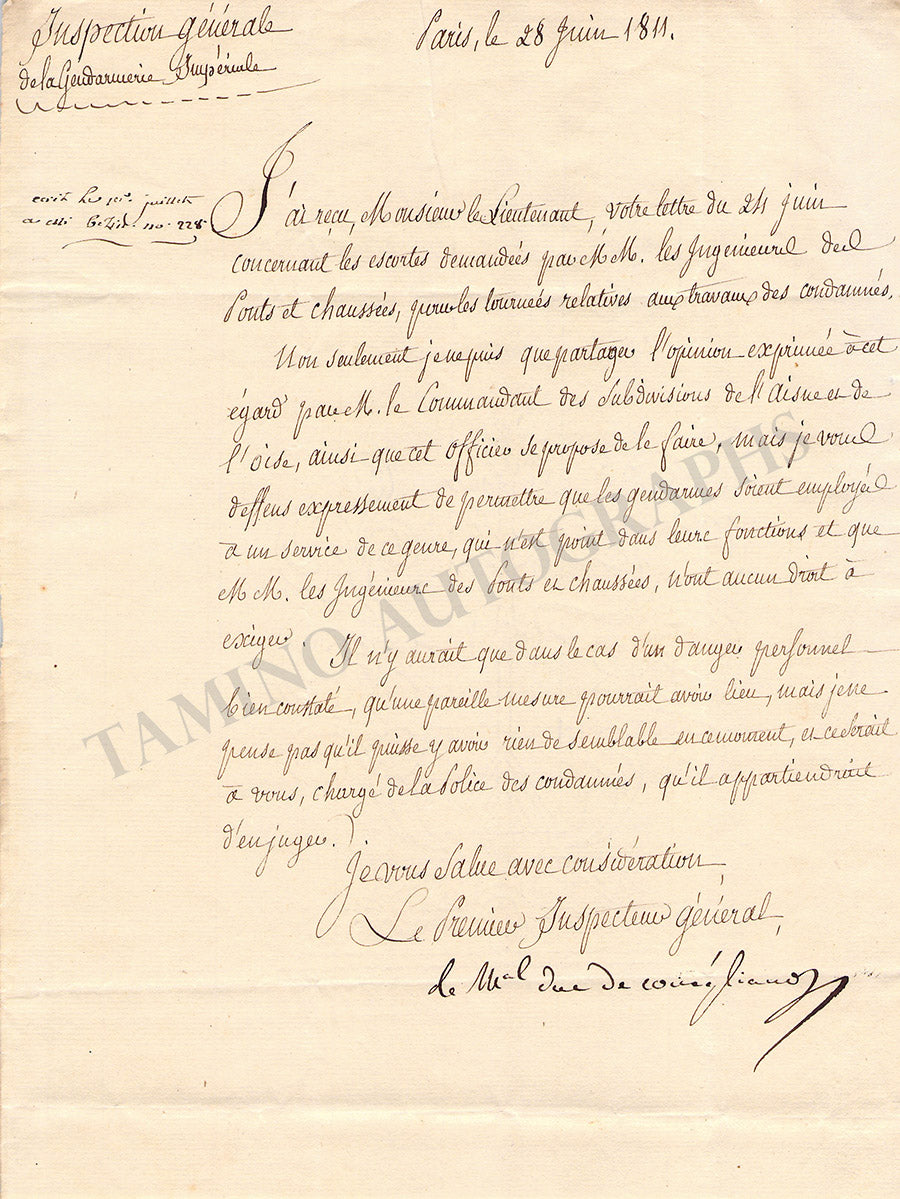 Inspection générale
de la Gendarmerie Impériale
Paris, le 28 Juin 1811.
écrit le 1er. juillet
J'ai reçu, Monsieur le Lieutenant, votre lettre du 24 juin
concernant les escortes demandées par MM. les Ingénieurs des
Ponts et chaussées, pour les tournées relatives aux travaux des condamnés.
Non seulement je ne puis que partager l'opinion exprimée à cet
égard par M. le Commandant des Subdivisions de l'Aisne et de
l'oise, ainsi que cet officier se propose de le faire, mais je vous
deffens expressement de permettre que les gendarmes soient employés
à un service de ce genre, qui n'est point dans leurs fonctions et que
MM. les Ingénieurs des Ponts et chaussées, n'ont aucun droit à
exiger. Il n'y aurait que dans le cas d'un danger personnel
bien constaté, qu'une pareille mesure pourrait avoir lieu, mais je ne
pense pas qu'il puisse y avoir rien de semblable en ce moment, et ce serait
à vous, chargé de la Police des condamnés, qu'il appartiendrait
d'en juger.
Je vous Salue avec considération,
Le Premier Inspecteur général,
le Mal duc de conégliano
TAMINO AUTOGRAPHS